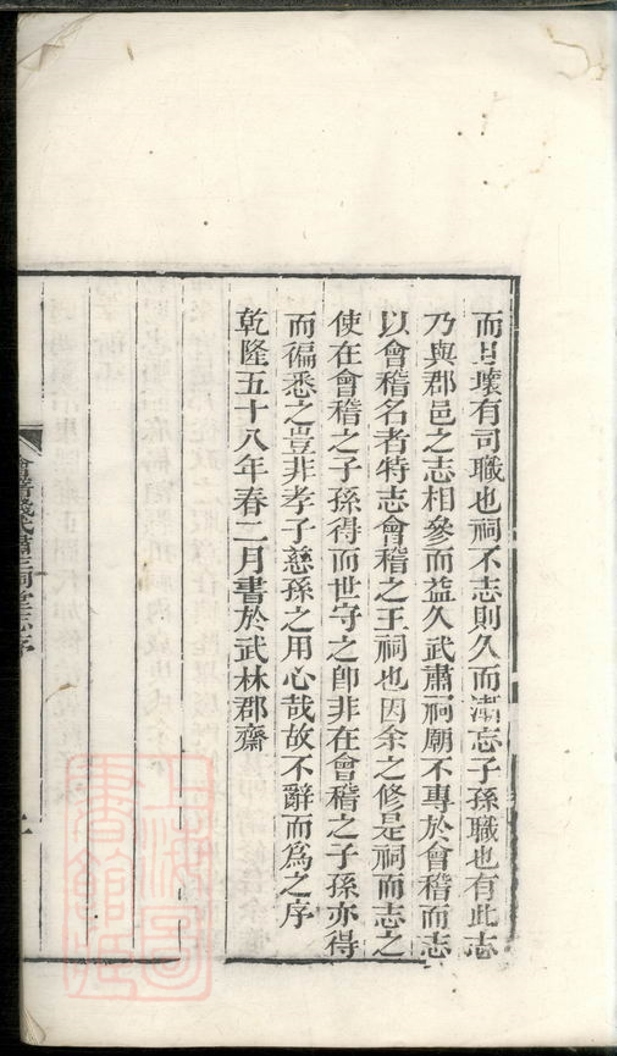 而且壞有司職也祠不志則久而漸忘子孫職也有此志
乃與郡邑之志相參而益久武肅祠廟不專於會稽而志
以會稽名者特志會稽之王祠也因余之修是祠而志之
使在會稽之子孫得而世守之卽非在會稽之子孫亦得
而徧悉之豈非孝子慈孫之用心哉故不辭而爲之序
乾隆五十八年春二月書於武林郡齋
會稽錢武肅王祠堂志序
上海圖書館藏